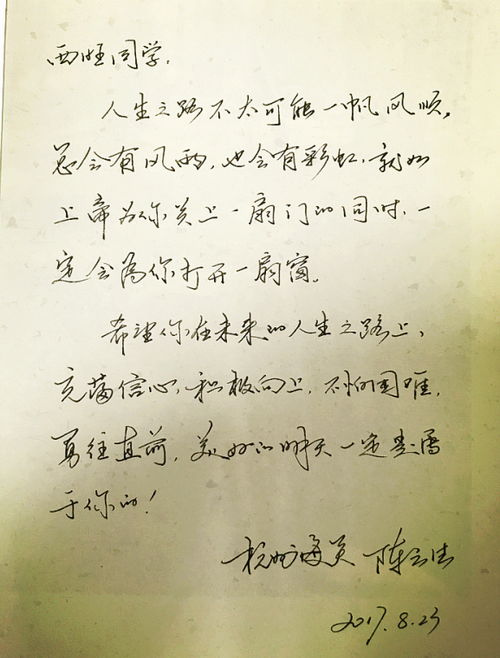 西旺同学.
人生之路不太可能一帆风顺,
总会有风雨,也会有彩虹,就如
上帝为你关上一扇门的同时,一
定会为你打开一扇窗。
希望你在未来的人生之路上,
充满信心,积极向上,不怕困难,
勇往直前,美好的明天一定是属
于你的!
杭州海关 陈云
2017.8.23